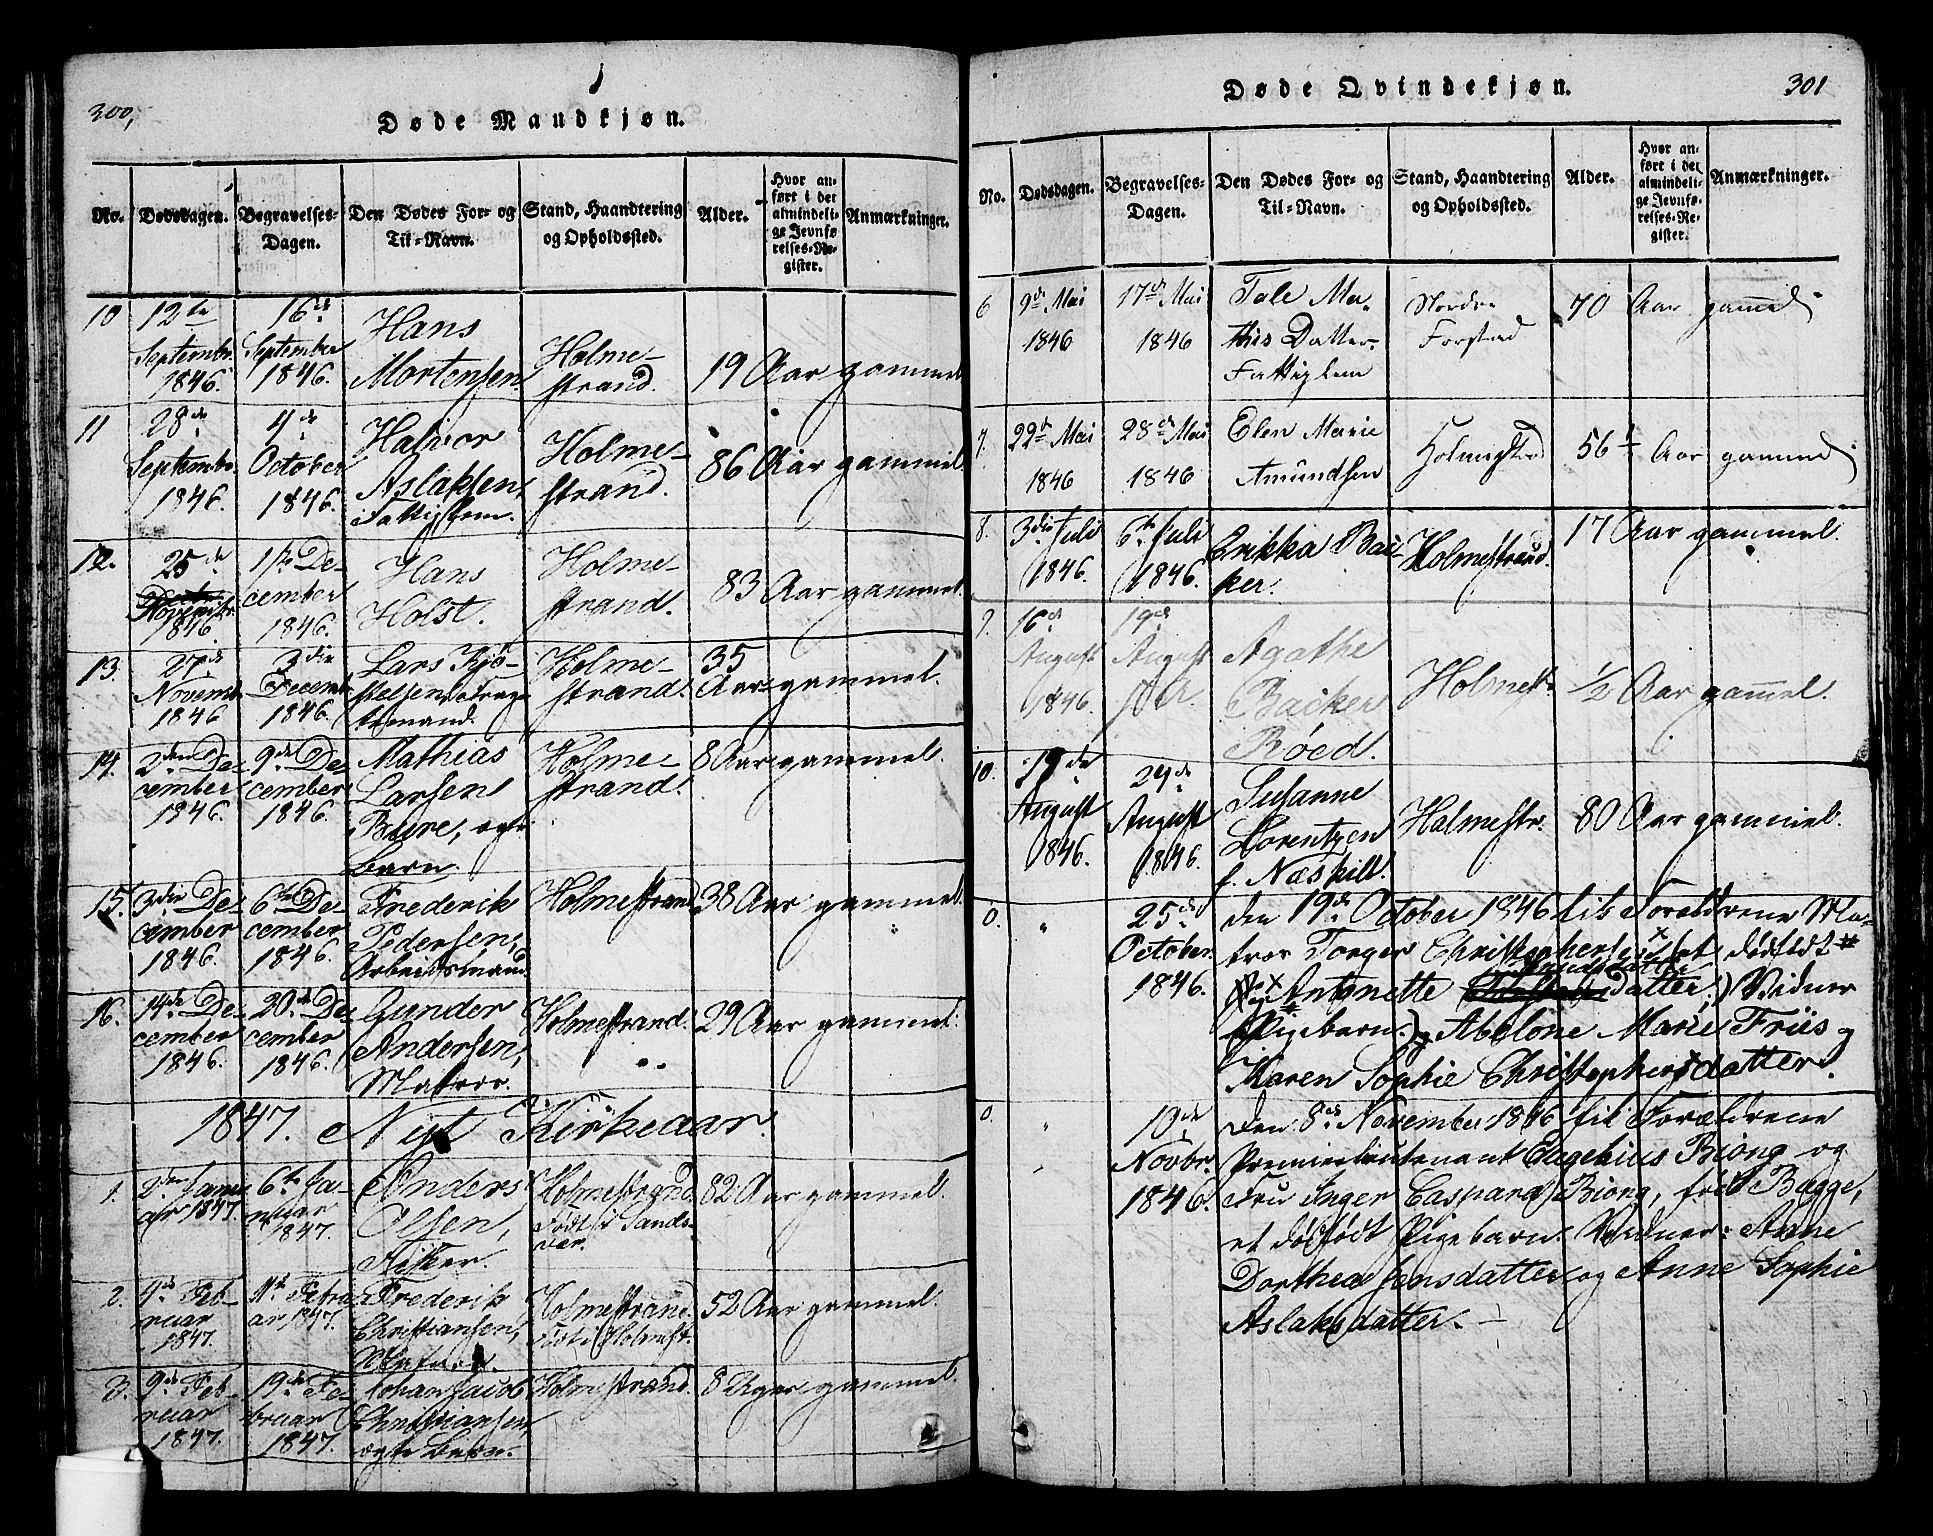 300,
Døde Mandkjøn.
No. Dødsdagen. Begravelses-Dagen. Den Dødes For- og Til-Navn. Stand, Haandtering og Opholdssted. Alder. Hvor anført i det almindelige Jevnførelses-Register. Anmærkninger.
10 12te September 1846. 16de September 1846. Hans Mortensen. Holmestrand. 19 Aar gammel
11 28de Septembr. 1846. 4de October 1846. Halvor Aslaksen, Fattiglem. Holmestrand. 86 Aar gammel
12. 25de Novembr. 1846. 1ste December 1846. Hans Holst. Holmestrand. 83 Aar gammel.
13. 27de Novembr. 1846 3die Decembr. 1846. Lars Holmestrand. 35 Aar gammel.
14. 2den December 1846. 9de December 1846. Mathias Larsen ægte barn. Holmestrand. 8 Aar gammel.
15. 3die December 1846. 6te December 1846. Frederik Pedersen, Arbeidsmand. Holmestrand 38 Aar gammel
16. 14de December 1846. 20de December 1846. Gunder Andersen, Matros. Holmestrand. 29 Aar gammel.
1847. Nyt Kirkeaar.
1. 2den Januar 1847. 6te Januar 1847. Anders Olsen, Holmestrand. Født i Sandsvær. 82 Aar gammel.
2. 4de Februar 1847. Februar 1847. Frederik Christiansen, Matros. Holmestrand. Født i Holmestr. 52 Aar gammel.
3. 9de Februar 1847. 19de Februar 1847. Johan Jacob Christiansen, ægte barn. Holmestrand. 8 Uger gammel.
301
Døde Qvindekjøn.
No. Dødsdagen. Begravelses-Dagen. Den Dødes For- og Til-Navn. Stand, Haandtering og Opholdssted. Alder. Hvor anført i det almindelige Jevnførelses-Register. Anmærkninger.
6 9de Mai 1846 17de Mai 1846 Tale Mathis Datter Fattiglem Nordre 70 Aar gammel
7. 22de Mai 1846 28de Mai 1846 Elen Marie Amundsen Holmestrand 56½ Aar gammel
8. 3die Juli 1846. 6te Juli 1846. Erikka Backer. Holmestrand. 17 Aar gammel.
9. 16de August 1846. 19de August Agathe Backer Röed. Holmestr. 1/2 Aar gammel.
10. 19de August 1846. 24de August 1846. Susanne Lorentzen f. Næskild. Holmestr. 80 Aar gammel.
0. " 25de October 1846. den 19de October 1846 til Forældrene Matros Torger Christophersen et dødfødt
Antonette datter.) Vidner
Pigebarn.) Abelone Marie Friis og
Karen Sophie Christophersdatter.
0. " 10de Novbr. 1846. Den 8de November 1846 til Forældrene
Premierlieutenant Engelhius Biong og
Fru Inger Caspara Biong, født Bagge,
et dødfødt Pigebarn. Vidner: Anne
Dorthea Jensdatter og Anne Sophie
Aslaksdatter.